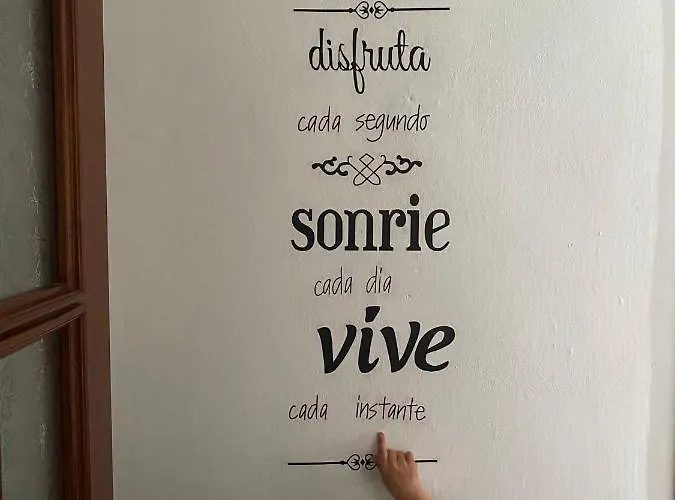 disfruta
cada segundo
sonrie
cada dia
vive
cada instante